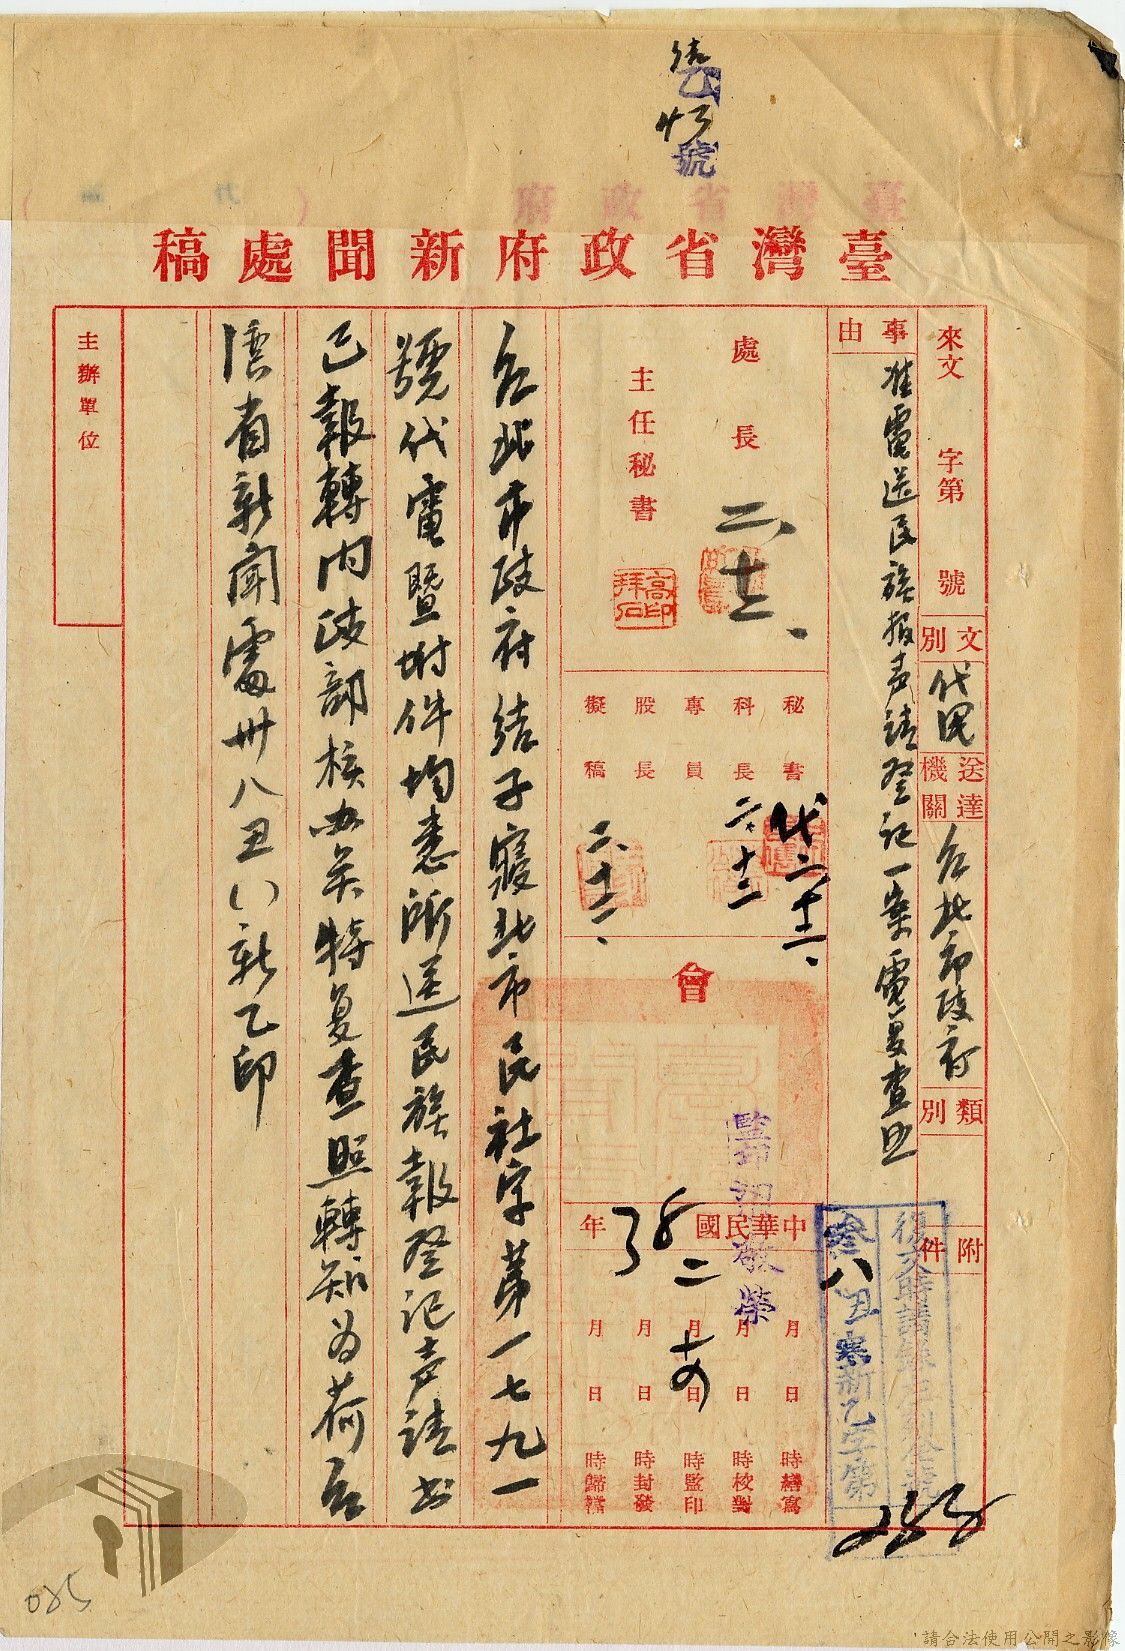 號
臺灣省政府新聞處稿
來文 字第 號
文別 代電
送達機關 台北市政府
類別
附件
事由 准電送民族報聲請登記一案電复查照
處長 二、十二、
主任秘書
高印拜石
秘書 代二、十二、
科長 二、十二
專員
股長
擬稿 二、十二、
會
監印
榮
中華民國38年
二 十四
月 日 時繕寫
月 日 時校對
月 日 時監印
月 日 時封發
月 日 時歸檔
復文時請錄左列全號
叁八丑寒新乙字第
台北市政府結子寢北市民社字第一七九一
號代電暨附件均悉所送民族報登記聲請書
已報轉內政部核办矣特复查照轉知为荷台
灣省新聞處卅八丑()新乙印
主辦單位
085
請合法使用公開之影像